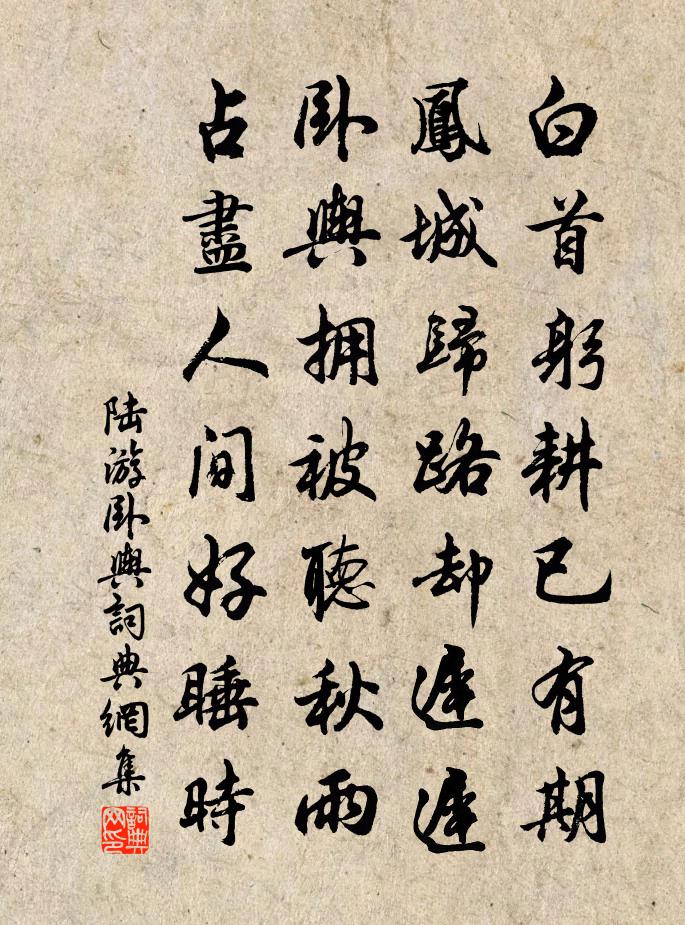 白首躬耕已有期
鳳城歸路却遲遲
卧輿擁被聽秋雨
占盡人間好睡時
陸游卧輿詞典網集
詞典网印